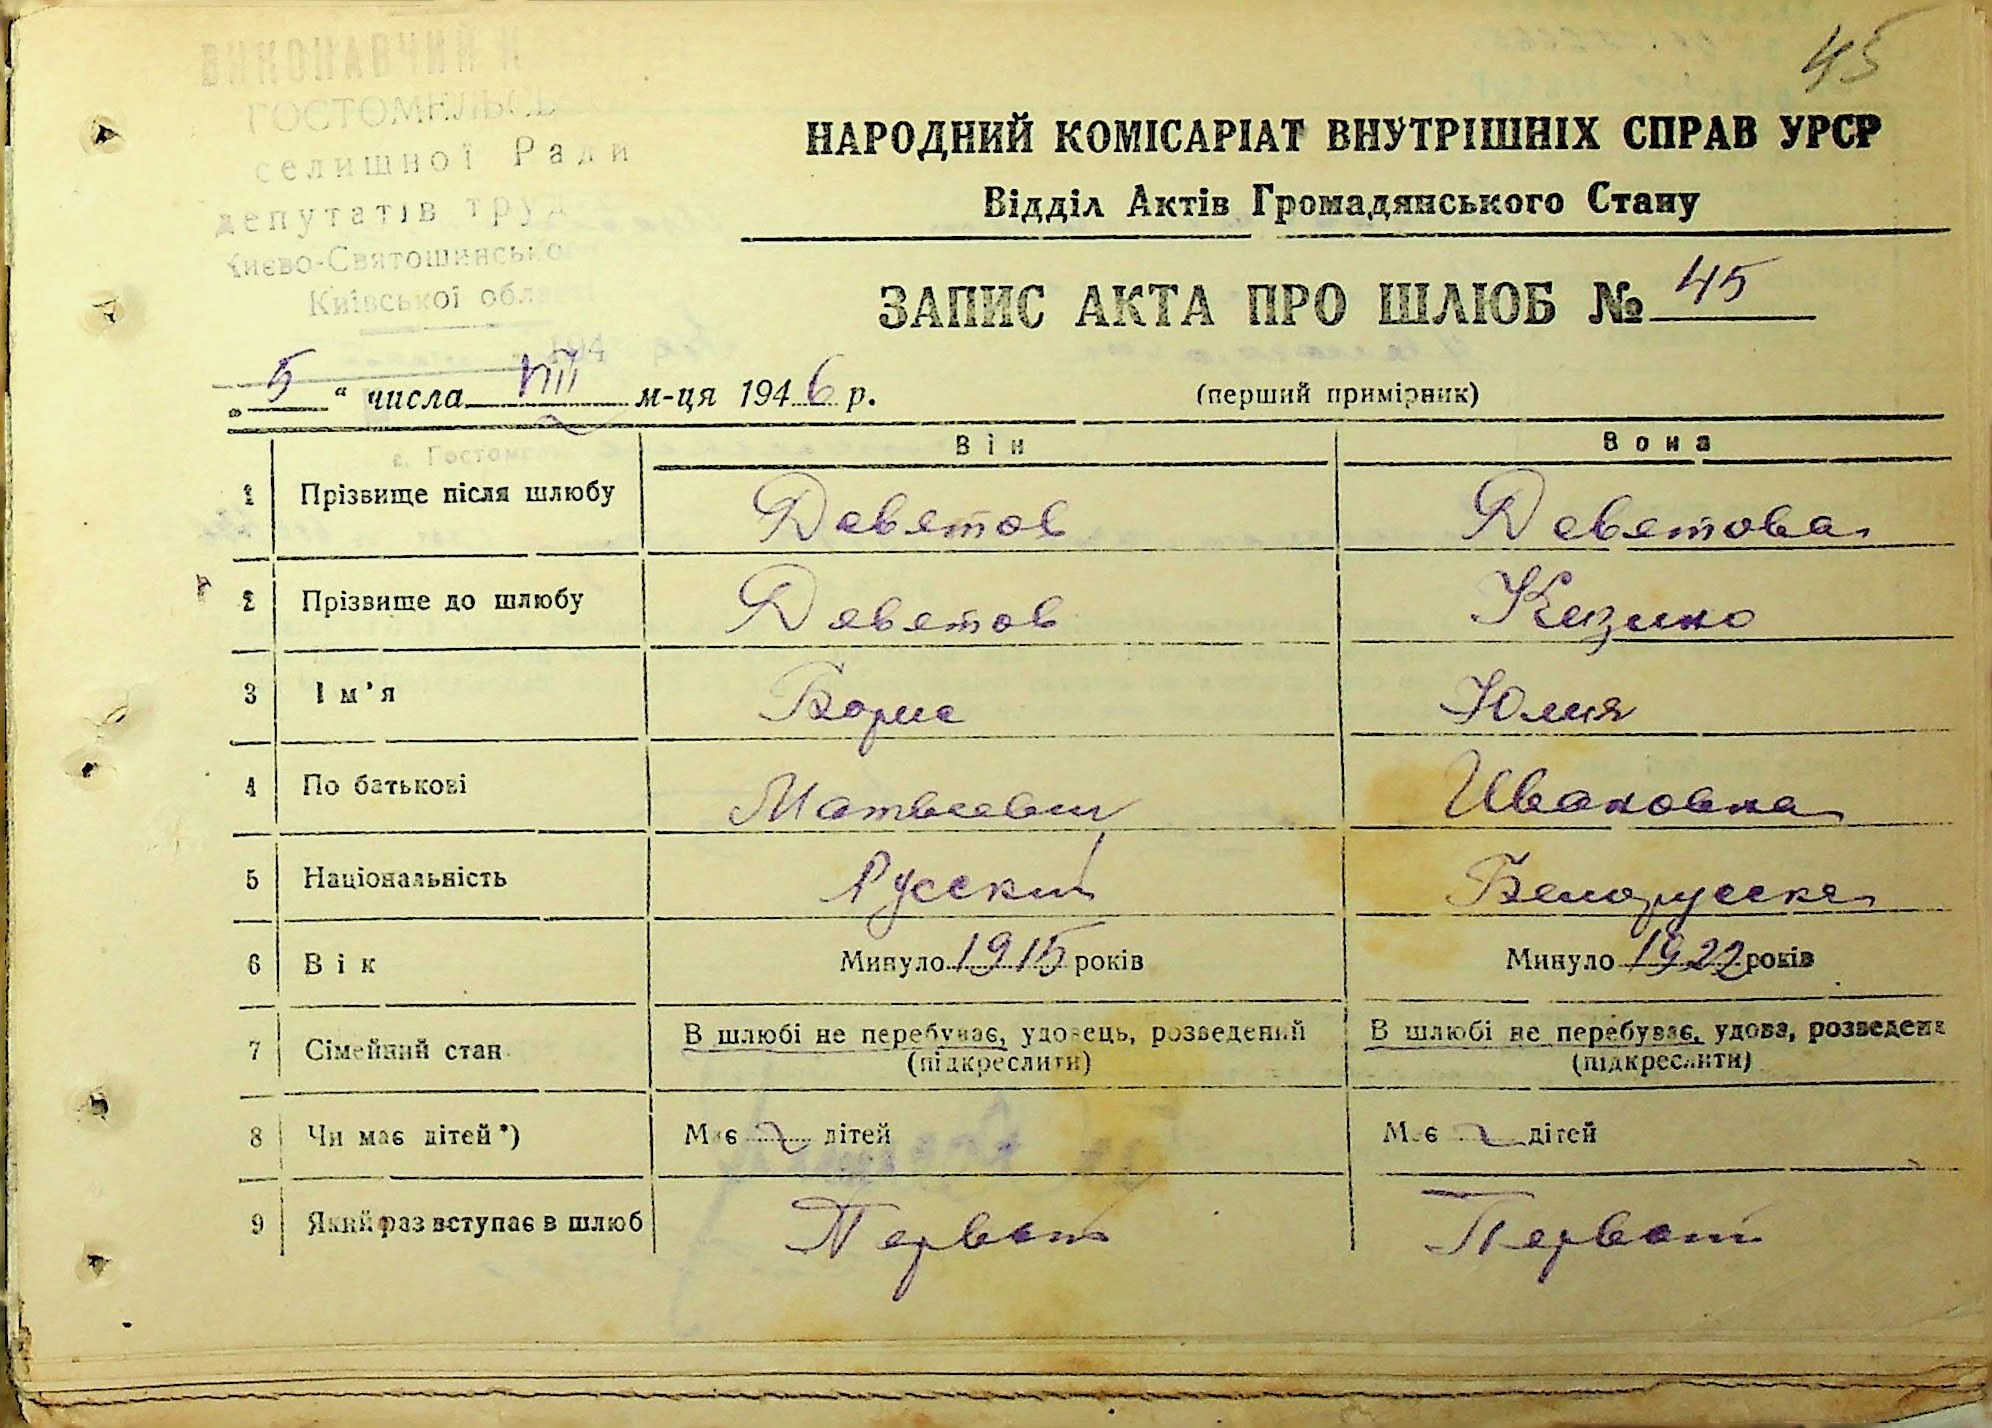 45
ВИКОНАВЧИЙ
ГОСТОМЕЛЬСЬ
селишної Ради
депутатів труд
Києво-Святошинсько
Київської області
194
НАРОДНИЙ КОМІСАРІАТ ВНУТРІШНІХ СПРАВ УРСР
Відділ Актів Громадянського Стану
ЗАПИС АКТА ПРО ШЛЮБ № 45
„5“ числа VIII м-ця 1946 р. (перший примірник)
с. Гостомель
Він Вона
1 Прізвище після шлюбу Девятов Девятова
2 Прізвище до шлюбу Девятов
3 Ім'я Борис Юлия
4 По батькові Матвеевич Ивановна
5 Національність Русский Белорусска
6 Вік Минуло 1915 років Минуло 1922 років
7 Сімейний стан В шлюбі не перебуває, удовець, розведений В шлюбі не перебуває, удова, розведена
(підкреслити) (підкреслити)
8 Чи має дітей*) Має дітей Має дітей
9 Який раз вступає в шлюб Первый Первый